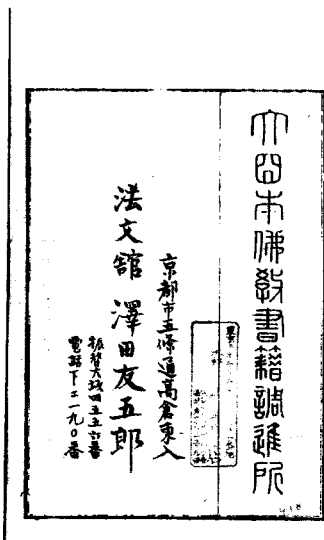 大日本佛教書籍調進所
京都市五條通高倉東入
法文館 澤田友五郎
振替大阪四五五番
電話下二一九〇番